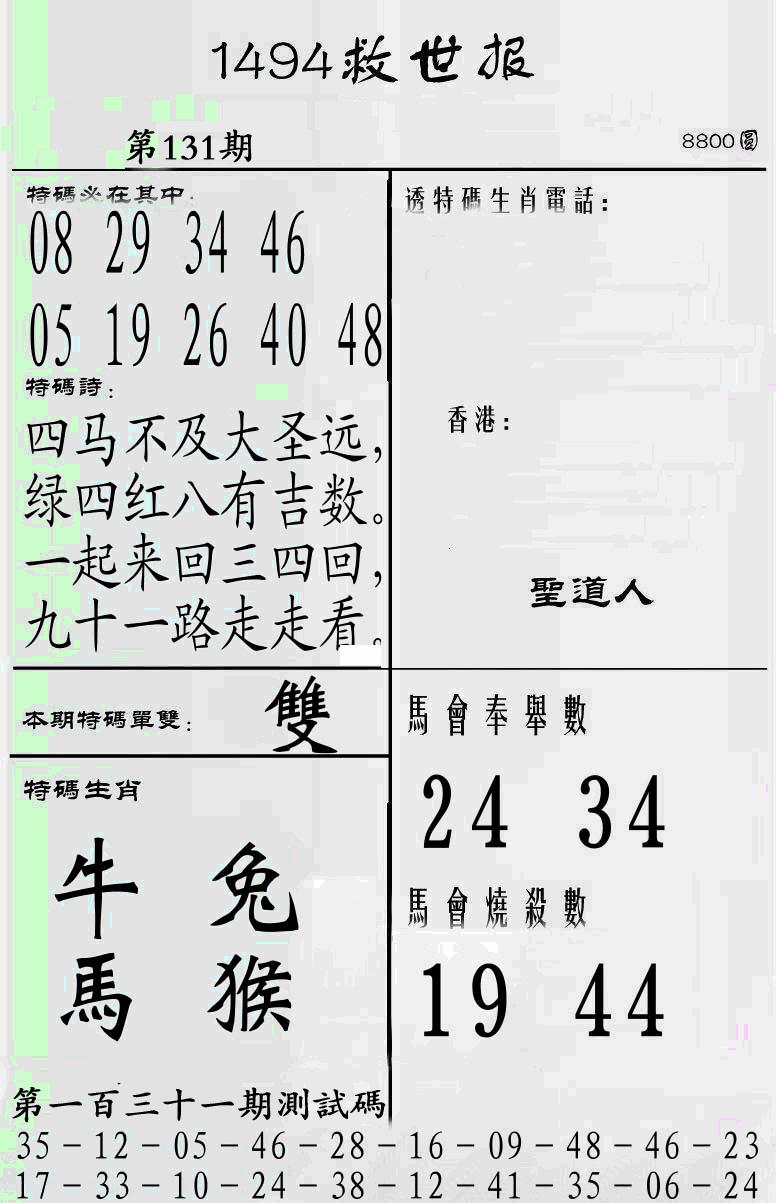 1494救世报
第131期
8800圓
特碼必在其中:
08 29 34 46
05 19 26 40 48
特碼詩:
四马不及大圣远,
绿四红八有吉数。
一起来回三四回,
九十一路走走看。
本期特碼單雙: 雙
特碼生肖
牛 兔
馬 猴
透特碼生肖電話:
香港:
聖道人
馬會奉舉數
24 34
馬會燒殺數
19 44
第一百三十一期測試碼
35-12-05-46-28-16-09-48-46-23
17-33-10-24-38-12-41-35-06-24